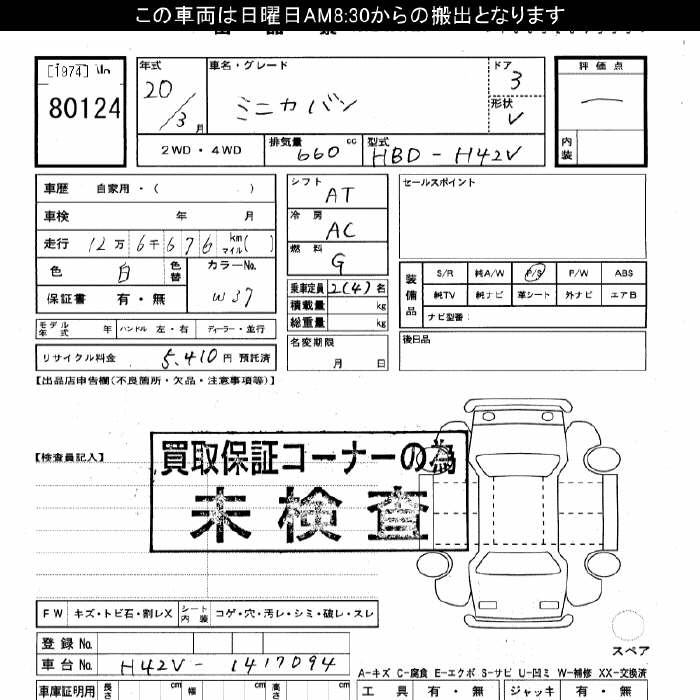 この車両は日曜日AM8:30からの搬出となります
[1974]
80124
年式
20/3月
車名・グレード
ミニカバン
ドア
3
形状
V
評価点
内装
2WD・4WD
排気量 660 cc
型式 HBD-H42V
車歴 自家用・( )
車検 年 月
走行 12万6千676 km マイル( )
色 白 色替
カラーNo. W37
保証書 有・無
モデル年式 年 ハンドル 左・右 ディーラー・並行
リサイクル料金 5,410円 預託済
シフト AT
冷房 AC
燃料 G
乗車定員 2(4)名
積載量 kg
総重量 kg
名変期限
月 日
セールスポイント
装備品
S/R 純A/W P/S P/W ABS
純TV 純ナビ 革シート 外ナビ エアB
ナビ型番:
後日品
【出品店申告欄(不良箇所・欠品・注意事項等)】
【検査員記入】
買取保証コーナーの為
未検査
FW キズ・トビ石・割レX シート内装 コゲ・穴・汚レ・シミ・破レ・スレ
スペア
登録No.
車台No. H42V-1417094
A-キズ C-腐食 E-エクボ S-サビ U-凹ミ W-補修 XX-交換済
車庫証明用 長さ cm 幅 cm 高さ cm
工具 有・無 ジャッキ 有・無